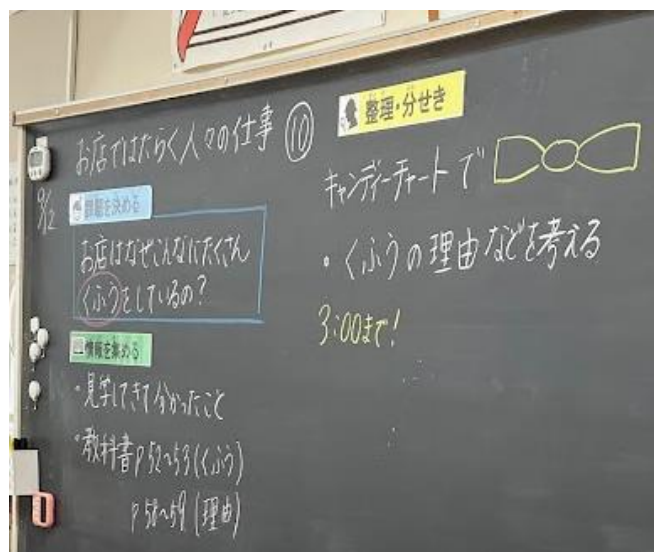 お店ではたらく人々の仕事 ⑩
9/12
課題を決める
お店はなぜこんなにたくさん
くふうをしているの?
情報を集める
・見学してきて分かったこと
・教科書p52~53(くふう)
p58~59(理由)
整理・分せき
キャンディーチャートで
・くふうの理由などを考える
3:00まで!